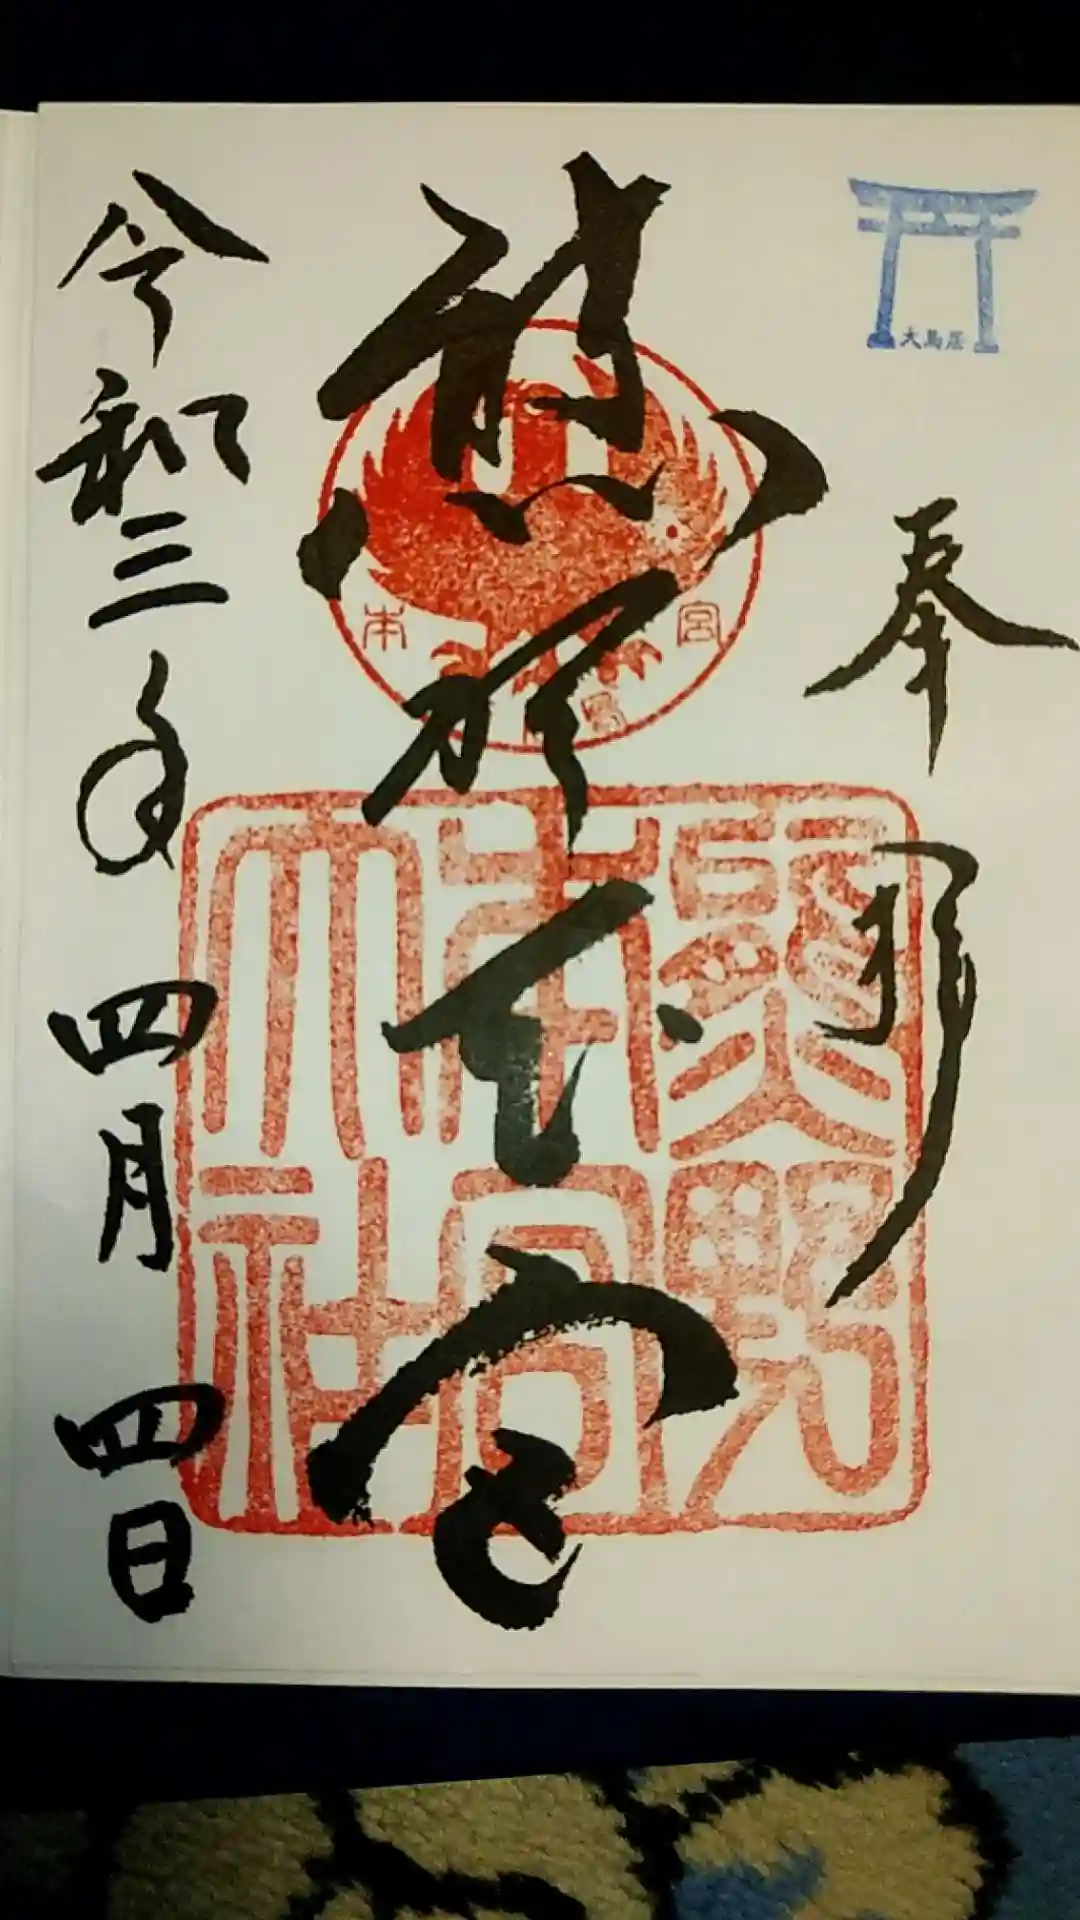 大鳥居
奉拝
熊野本宮
本宮
熊野本宮大社
令和三年四月四日